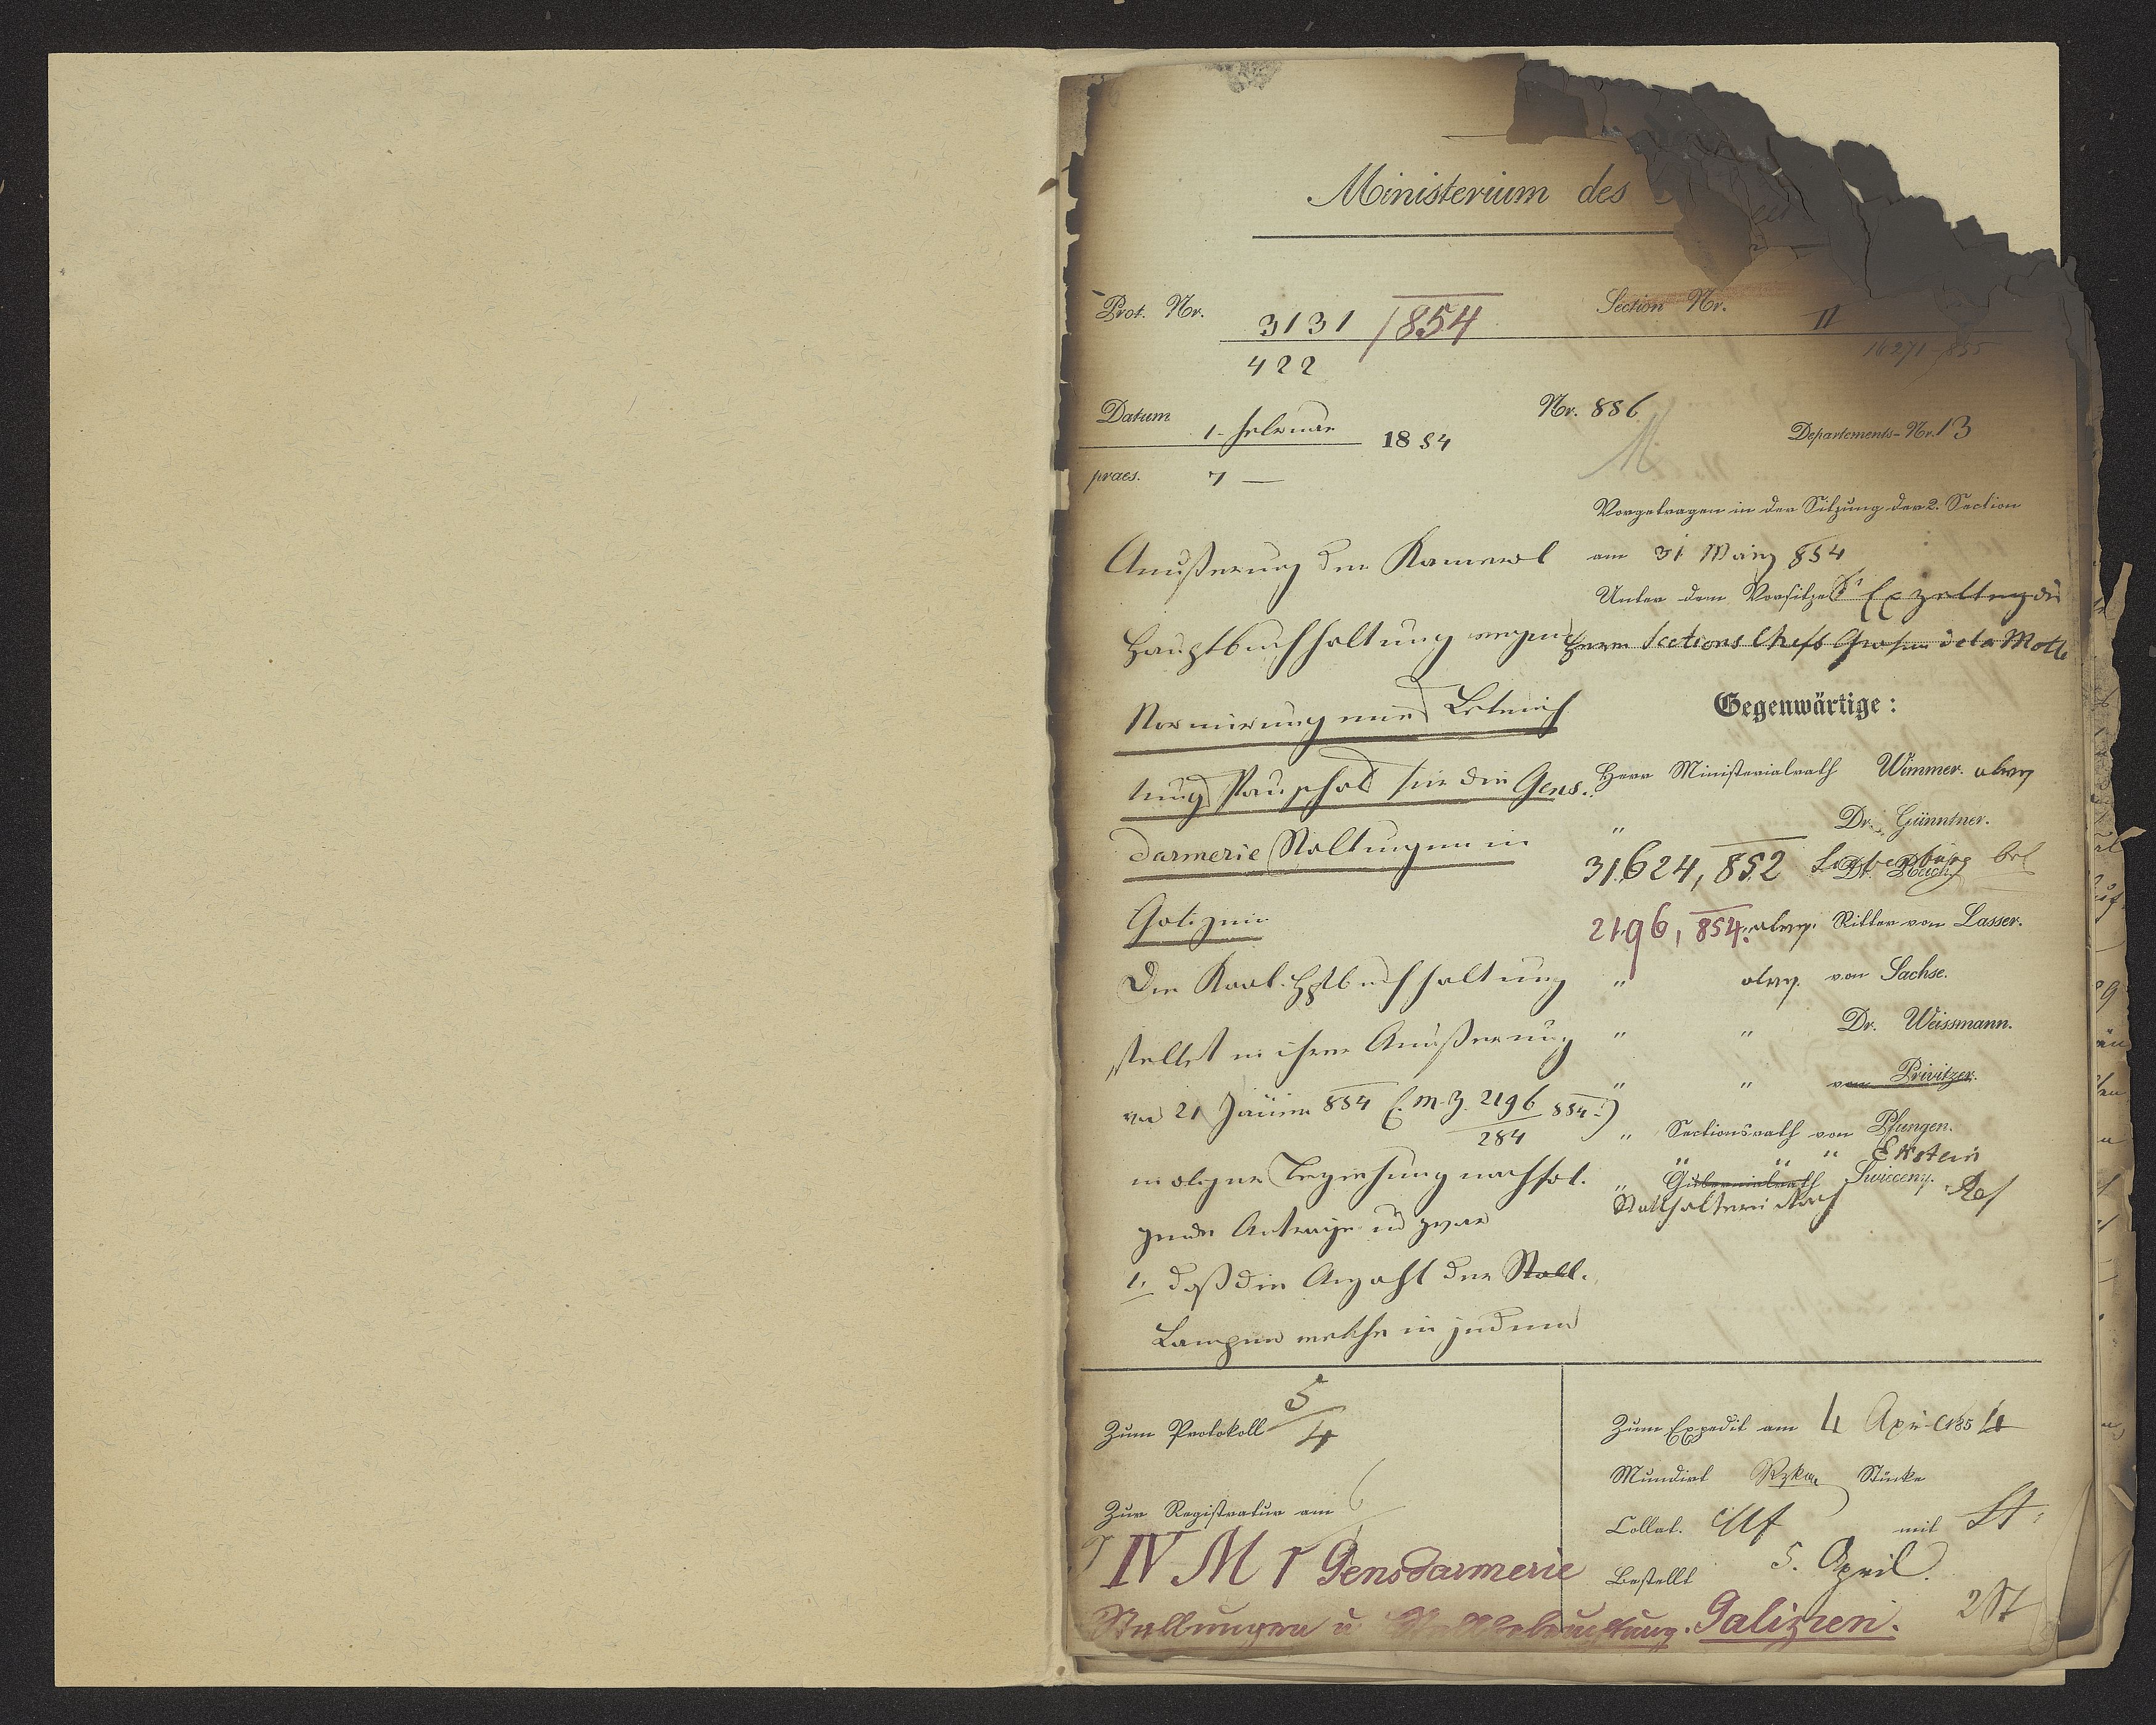 Ministerium des
Prot. Nr. 3131 / 854
422
Section Nr. II
16271/855
Datum 1. Februar 1854
praes. 7 —
Nr. 886
Departements-Nr. 13
Vorgetragen in der Sitzung der 2. Section
am 31 März 854
Unter dem Vorsitze Sr Exzellenz des
Herrn Sections Chefs Grafen de la Motte
Gegenwärtige:
Herr Ministerialrath Wimmer. abwes
" Dr. Günntner.
31.624, 852
Dr. Bach
2196, 854. abwes. Ritter von Lasser.
" abwes. von Sachse.
" " Dr. Weissmann.
" " von Privitzer.
" Sectionsrath von Pfungen.
" " " Ekstein
" Gubernialrath Swieceny. Ref
Statthalterei Rath
Aeußerung der Kameral
Hauptbuchhaltung wegen
Normirung eines Beleuch
tungs Pauschals für die Gens.
darmerie Stallungen in
Galizien
Die Kaal. Hptbuchhaltung
stellet in ihrer Aeußerung
vom 21 Jänner 854 (: M. Z. 2196/284 854 :)
in obiger Beziehung nachfol.
gende Anträge u zwar
1. daß die Anzahl der Stall.
Lampen welche in jedem
Zum Protokoll 5/4
Zur Registratur am 6
Zum Expedit am 4 April 1854
Mundirt Stücke
Collat. mit
Bestellt 5. April.
IV M 1 Gensdarmerie
Stallungen u. Stallbeleuchtung. Galizien.